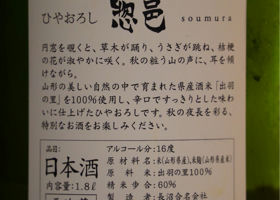 ひやおろし
惣邑
soumura
円窓を覗くと、草木が踊り、うさぎが跳ね、桔梗
の花が淑やかに咲く。秋の粧う山の声に、耳を傾
けながら。
山形の美しい自然の中で育まれた県産酒米「出羽
の里」を100%使用し、辛口ですっきりとした味わ
いに仕上げたひやおろしです。秋の夜長を彩る、
特別なお酒をお楽しみください。
品目:
日本酒
内容量:1.8ℓ
アルコール分:16度
原材料名:米(山形県産)、米麹(山形県産米)
原料米:出羽の里100%
精米歩合:60%
製造者:長沼合名会社